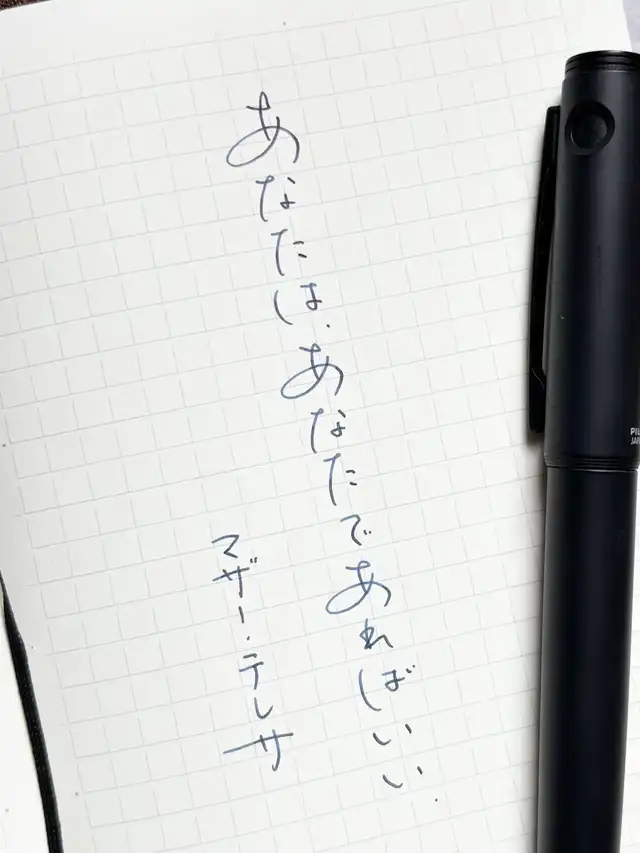 あなたは、あなたであればいい.
マザー・テレサ
PIL
JAP